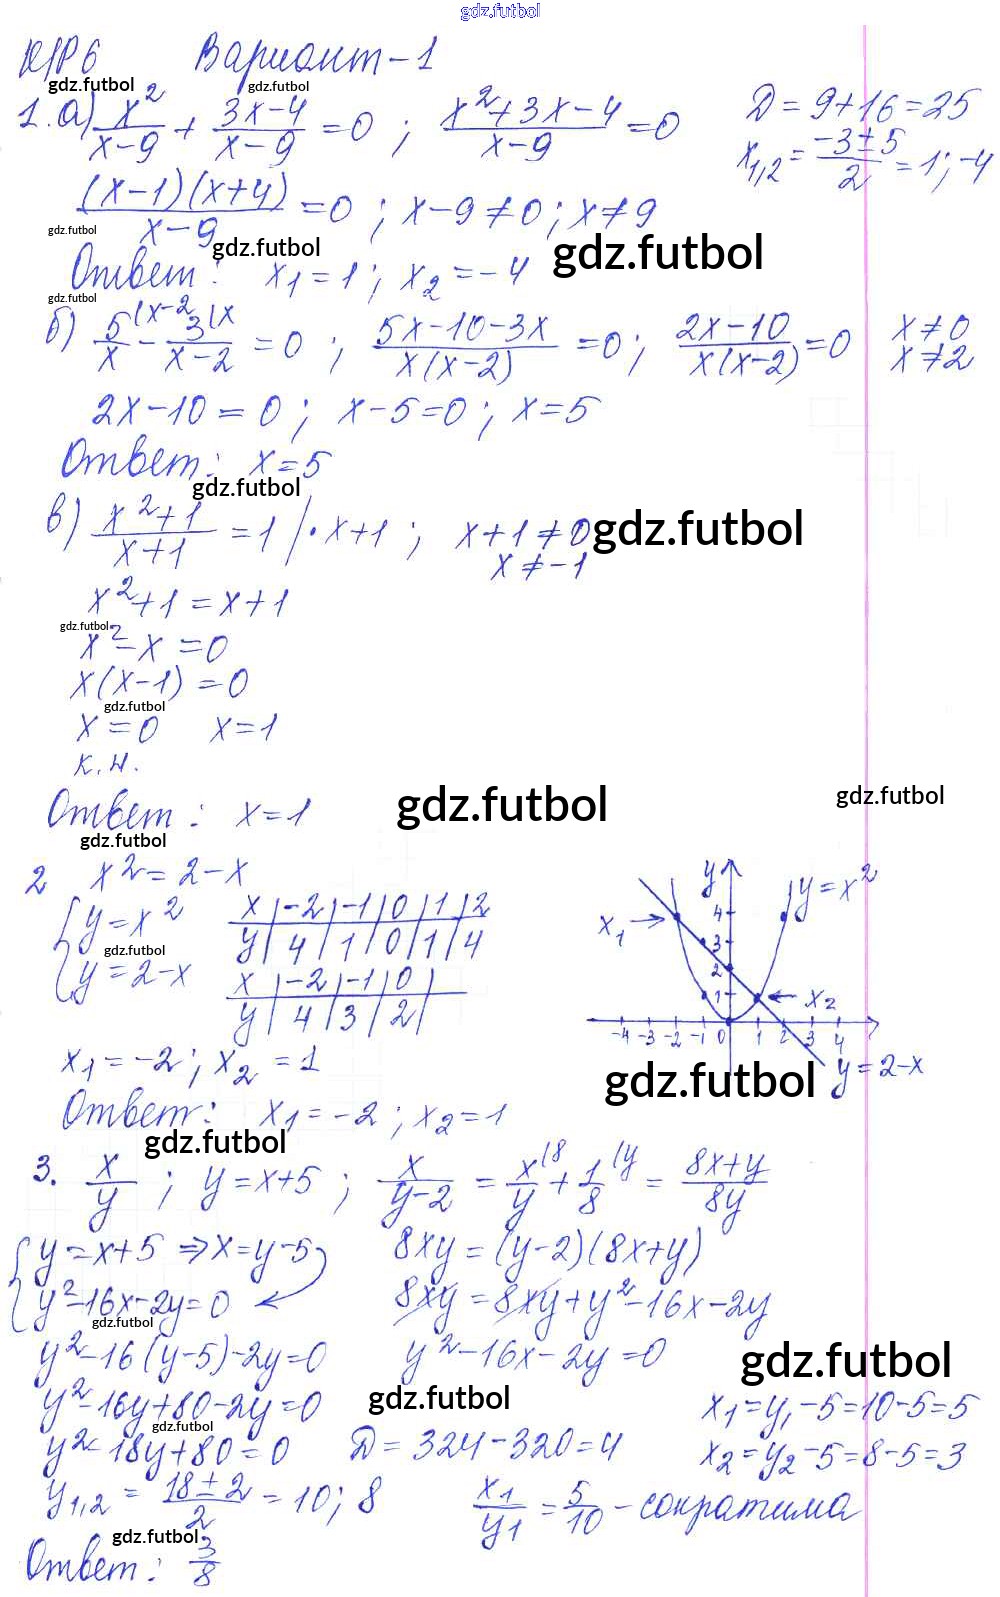 gdz.futbol
К/Р 6 Вариант-1
gdz.futbol gdz.futbol
1. а) x²/(x-9) + (3x-4)/(x-9) = 0 ; (x²+3x-4)/(x-9) = 0 Д = 9+16 = 25
x₁,₂ = (-3±5)/2 = 1; -4
(x-1)(x+4)/(x-9) = 0 ; x-9≠0; x≠9
gdz.futbol gdz.futbol gdz.futbol
Ответ: x₁=1; x₂=-4
gdz.futbol
б) 5/x (x-2 - 3/(x-2) (x = 0 ; (5x-10-3x)/(x(x-2)) = 0; (2x-10)/(x(x-2)) = 0 x≠0
x≠2
2x-10=0; x-5=0; x=5
Ответ: x=5
gdz.futbol
в) (x²+1)/(x+1) = 1 |·x+1 ; x+1≠0 gdz.futbol
x≠-1
x²+1=x+1
gdz.futbol
x²-x=0
x(x-1)=0
gdz.futbol
x=0 x=1
к.н.
Ответ: x=1 gdz.futbol gdz.futbol
gdz.futbol
2 x²=2-x
{ y=x² x | -2 | -1 | 0 | 1 | 2
gdz.futbol y | 4 | 1 | 0 | 1 | 4
y=2-x x | -2 | -1 | 0 |
y | 4 | 3 | 2 |
y y=x²
x₁ → 4
3
2
1 ← x₂
-4 -3 -2 -1 0 1 2 3 4
y=2-x
gdz.futbol
x₁=-2; x₂=1
Ответ: x₁=-2; x₂=1
gdz.futbol
3. x/y ; y=x+5 ; x/(y-2) = x/y (8 + 1/8 (y = (8x+y)/8y
gdz.futbol
{ y=x+5 ⇒ x=y-5 8xy=(y-2)(8x+y)
y²-16x-2y=0 8xy=8xy+y²-16x-2y
gdz.futbol
y²-16(y-5)-2y=0 y²-16x-2y=0 gdz.futbol
y²-16y+80-2y=0 gdz.futbol x₁=y₁-5=10-5=5
gdz.futbol
y²-18y+80=0 Д=324-320=4 x₂=y₂-5=8-5=3
y₁,₂ = (18±2)/2 = 10; 8 x₁/y₁ = 5/10 - сократима
gdz.futbol
Ответ: 3/8